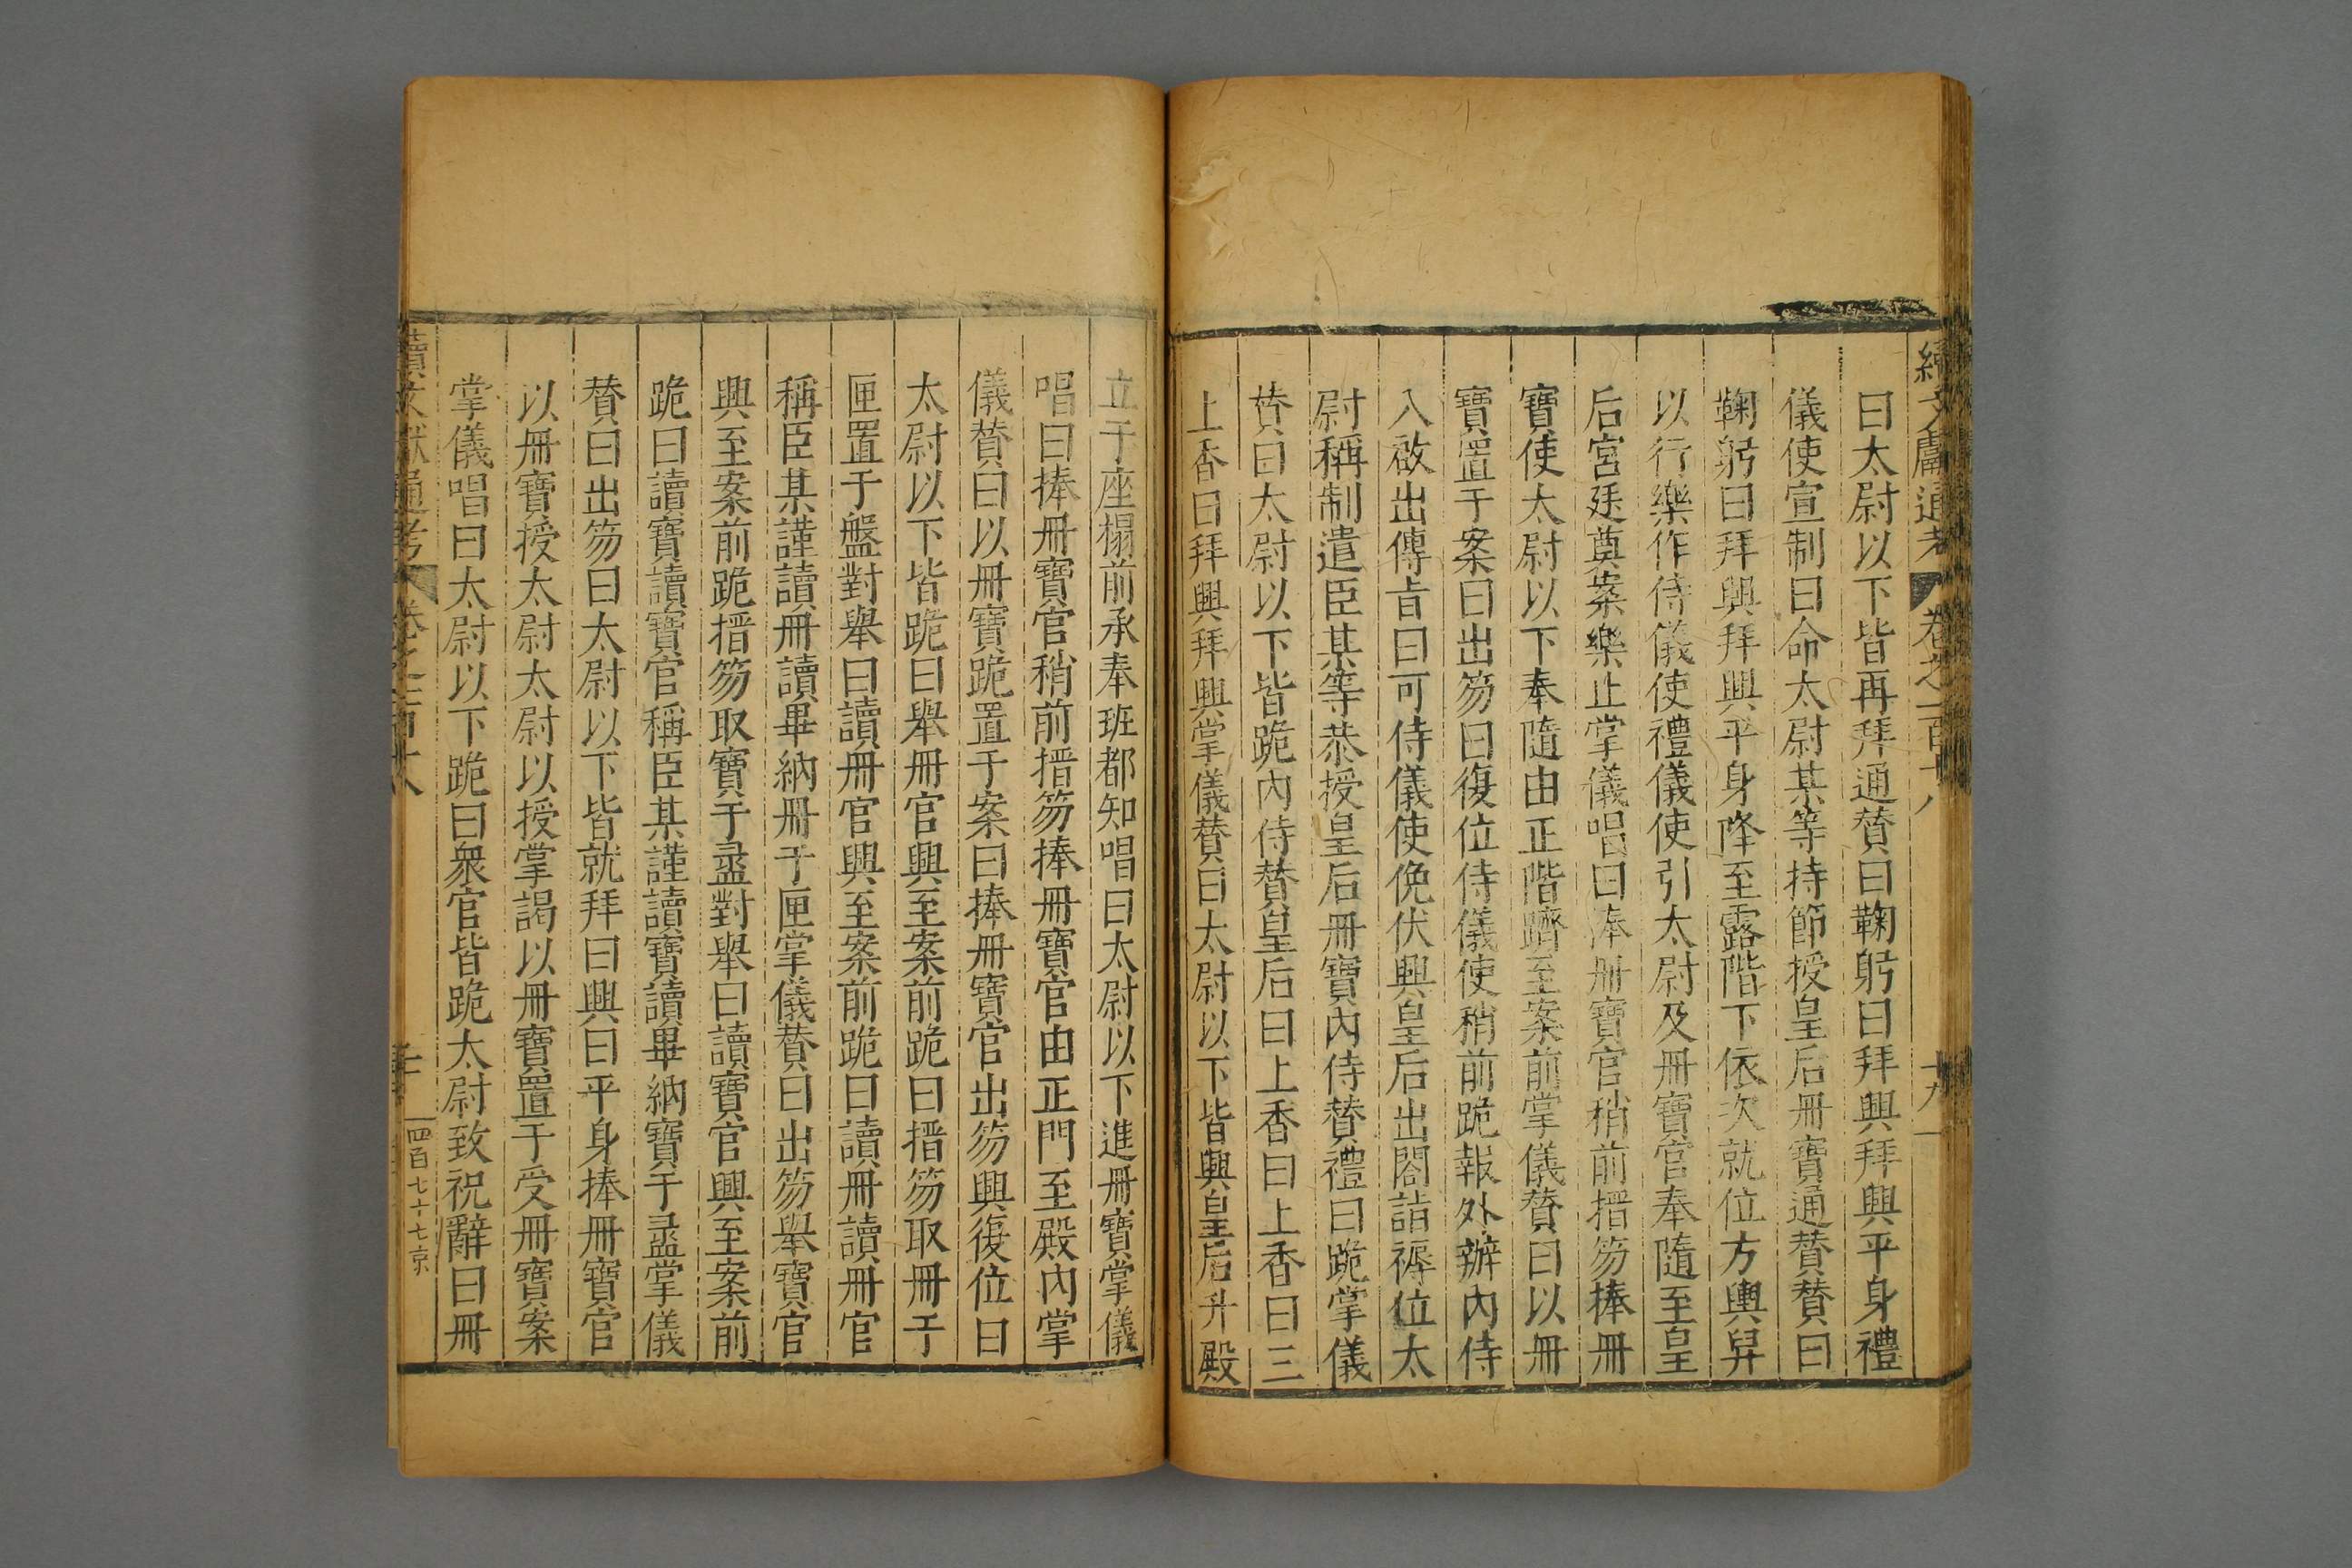 續文獻通考 卷之一百十八 十九
曰太尉以下皆再拜通賛曰鞠躬曰拜興拜興平身禮
儀使宣制曰命太尉某等持節授皇后冊寶通賛賛曰
鞠躬曰拜興拜興平身降至露階下依次就位方輿舁
以行樂作侍儀使禮儀使引太尉及冊寶官奉隨至皇
后宮廷奠案樂止掌儀唱曰捧冊寶官稍前搢笏捧冊
寶使太尉以下奉隨由正階躋至案前掌儀賛曰以冊
寶置于案曰出笏曰復位侍儀使稍前跪報外辦內侍
入啟出傳旨曰可侍儀使俛伏興皇后出閤詣褥位太
尉稱制遣臣某等恭授皇后冊寶內侍賛禮曰跪掌儀
賛曰太尉以下皆跪內侍賛皇后曰上香曰上香曰三
上香曰拜興拜興掌儀賛曰太尉以下皆興皇后升殿
立于座榻前承奉班都知唱曰太尉以下進冊寶掌儀
唱曰捧冊寶官稍前搢笏捧冊寶官由正門至殿內掌
儀賛曰以冊寶跪置于案曰捧冊寶官出笏興復位曰
太尉以下皆跪曰舉冊官興至案前跪曰搢笏取冊于
匣置于盤對舉曰讀冊官興至案前跪曰讀冊讀冊官
稱臣某謹讀冊讀畢納冊于匣掌儀賛曰出笏舉寶官
興至案前跪搢笏取寶于盝對舉曰讀寶官興至案前
跪曰讀寶讀寶官稱臣某謹讀寶讀畢納寶于盝掌儀
賛曰出笏曰太尉以下皆就拜曰興曰平身捧冊寶官
以冊寶授太尉太尉以授掌謁以冊寶置于受冊寶案
掌儀唱曰太尉以下跪曰衆官皆跪太尉致祝辭曰冊
續文獻通考 卷之一百十八 四百七十七京